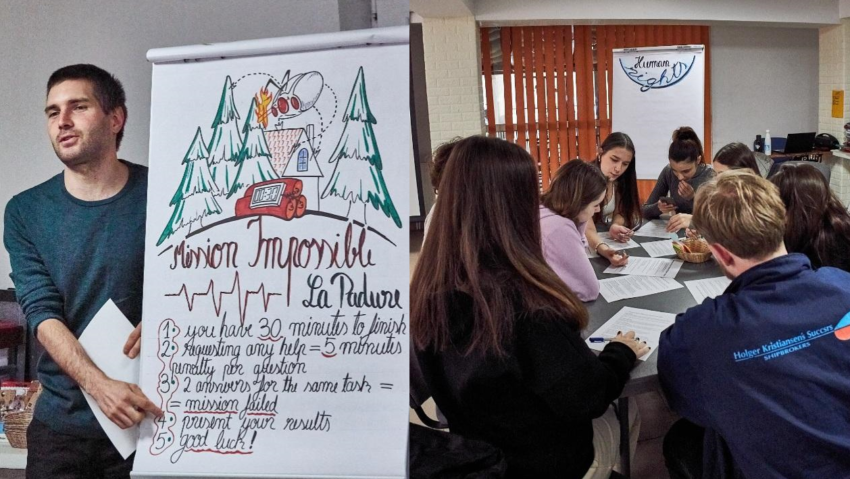 Mission Impossible
La Padure
1. you have 30 minutes to finish
2. requesting any help = 5 minutes
penalty per question
3. 2 answers for the same task =
= mission failed
4. present your results
5. good luck!
Human
Rights
Holger Kristiansens Succrs
SHIPBROKERS